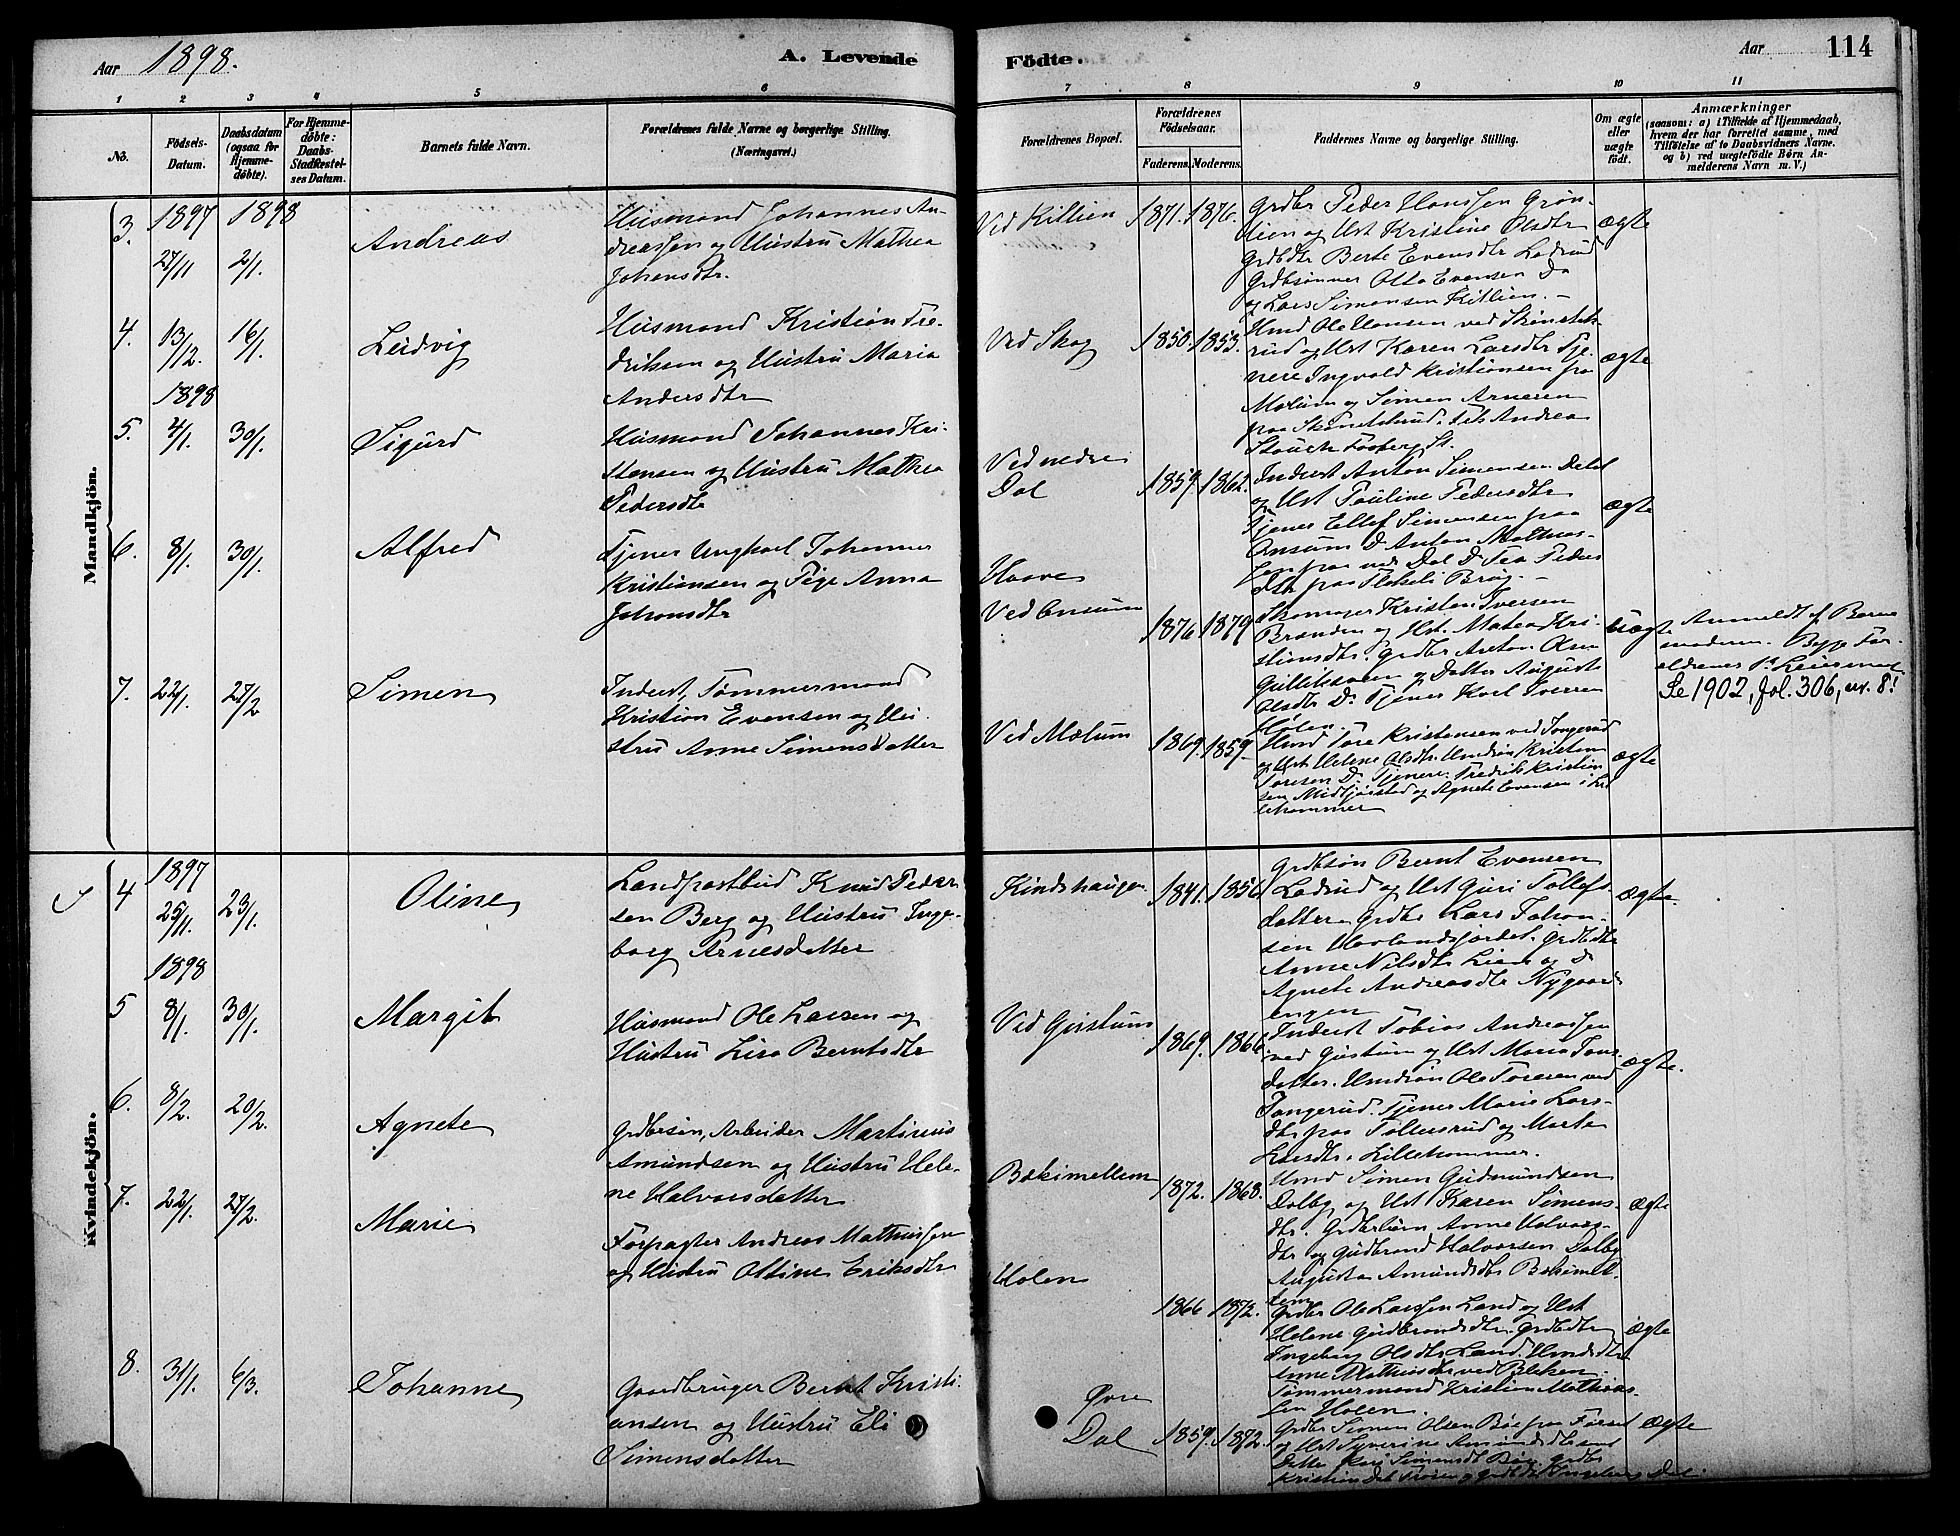 Aar 1898.
A. Levende
Födte.
Aar 114
1 2 3 4 5 6
7 8 9 10 11
No.
Födsels-
Datum.
Daabsdatum
(ogsaa for
Hjemme-
döbte).
For Hjemme-
döbte:
Daabs-
Stadfæstel-
ses Datum.
Barnets fulde Navn.
Forældrenes fulde Navne og borgerlige Stilling.
(Næringsvei.)
Forældrenes Bopæl.
Forældrenes
Födselsaar.
Faderens. Moderens.
Faddernes Navne og borgerlige Stilling.
Om ægte
eller
uægte
födt.
Anmærkninger
(saasom: a) i Tilfælde af Hjemmedaab,
hvem der har forrettet samme, med
Tilföielse af to Daabsvidners Navne.
og b) ved uægtefödte Börn An-
melderens Navn m. V.)
Mandkjön.
3. 1897 1898
27/11 2/1.
Andreas
Husmand Johannes An-
dreassen og Hustru Mathea
Johansdtr.
Ved Killien 1871. 1876.
Grdbr Peder Hanssen Grøn-
lien og Hst Kristine Olsdtr
Grdbdtr Berte Evensdtr Ladrud
Grdbsønner Otto Evensen Do
og Lars Simensen Killien.
ægte
4. 13/12. 16/1.
Ludvig
Husmand Kristian Fre-
driksen og Hustru Maria
Andersdtr
Ved Skog 1850. 1853.
Hmd Ole Hansen ved Skönstels-
rud og Hst Karen Larsdtr Tje-
nere Ingvald Kristiansen paa
Mælum og Simen Arnesen
paa
ægte
1898
5. 4/1. 30/1.
Sigurd
Husmand Johannes Kri-
stensen og Hustru Mathea
Pedersdtr
Ved nedre
Dal 1859. 1862.
Inderst Anton Simensen Dalel
og Hst Pauline Pedersdtr
Tjener Ellef Simensen paa
Onsum D. Anton Mathias-
sen paa nedr Dal D. Tea Peders
dtr paa
ægte
6. 8/1. 30/1.
Alfred
Tjener Ungkarl Johannes
Kristiansen og Pige Anna
Johansdtr
Haave
Ved Onsum 1876 1879
Skomager Kristen Iversen
Branden og Hst. Matea Kri-
stiansdtr. Grdbr Anton Olsen
og Datter Augusta
Olsdtr D. Tjener Karl Iversen
Holen.
uægte
Anmeldt af Barne
moderen. Begge For-
ældrenes 1ste Leiermaal
Se 1902, fol. 306, nr. 8!
7. 22/1. 27/2
Simen
Inderst, Tømmermand
Kristian Evensen og Hu-
stru Anne Simensdatter
Ved Mælum 1869. 1859.
Hmd Tore Kristensen ved Tongerud
og Hst Helene Olsdtr. Hmdsøn Kristian
Toresen D. Tjenere Fredrik Kristian
sen Midtjørstad og Agnete Evensen i Lil
lehammer
ægte
Kvindekjön.
4 1897
25/11. 23/1.
Oline
Landpostbud Knud Peder-
sen Berg og Hustru Inge-
borg Arnesdatter
Kindshaugen 1841. 1856.
Grdbsøn Bernt Evensen
Ladrud og Hst Guri Tollefs
datter Grdbr Lars Johan-
sen Havlandsjordet. Grdbdtr
Anne Nilsdtr Lien og D
Agnete Andreasdtr Nygaard
engen
ægte.
1898
5 8/1. 30/1.
Margit
Husmand Ole Larsen og
Hustru Lisa Berntsdtr
Ved Gurstum 1869. 1866
Inderst Tobias Andreassen
ved Gustum og Hst Maria Tors
datter. Hmdsøn Ole Toresen ved
Tongerud. Tjener Marie Lars-
dtr paa Tollersrud og Marte
Larsdtr, Lillehammer.
ægte.
6. 8/2. 20/2.
Agnete
Grdbrsøn, Arbeider Martinus
Amundsen og Hustru Hele-
ne Halvorsdatter
Bækimellem 1872. 1868.
Hmd Simen Gudmundsen
Dalby og Hst Karen Simens-
dtr. Anne Halvors-
dtr og Gudbrand Halvorsen Dalby
Augusta Amundsdtr Bækimel
lem
ægte
7. 22/1. 27/2.
Marie
Forpagter Andreas Mathissen
og Hustru Oltine Eriksdtr
Holen 1866 1872.
Grdbr Ole Larssen Land og Hst
Helene Gudbrandsdtr. Grdbdtr
Ingeborg Olsdtr Land. Hmdsdtr
Anne Mathisdtr ved Bækken
Tømmermand Kristian Mathias-
sen Holen.
ægte
8. 31/1. 6/3.
Johanne
Gaardbruger Bernt Kristi-
ansen og Hustru Eli
Simensdatter
Øvre
Dal 1859. 1872.
Grdbr Simen Olsen Bøe paa Forset
og Hst Syverine Amundsdtr samt
Datter Kari Simensdtr Bøe. Grdbr
Kristian og Grdbdtr Ingeborg Dal.
ægte